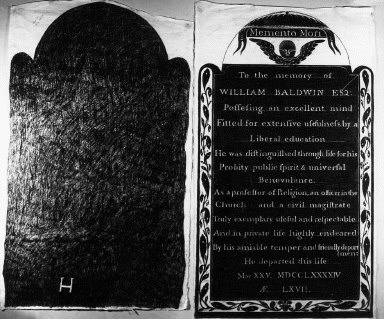 Memento Mori
To the memory of
WILLIAM BALDWIN ESQ.
Poſſeſing an excellent mind
Fitted for extenſive uſefulneſs by a
Liberal education
He was diſtinguiſhed through life for his
Probity public ſpirit & univerſal
Benevolence.
As a profeſſor of Religion, an officer in the
Church and a civil magiſtrate
Truly exemplary uſeful and reſpectable
And in private life highly endeared
By his amiable temper and friendly deport
ment
He departed this life
May XXV. MDCCLXXXXIV
Æ. LXVII.
H